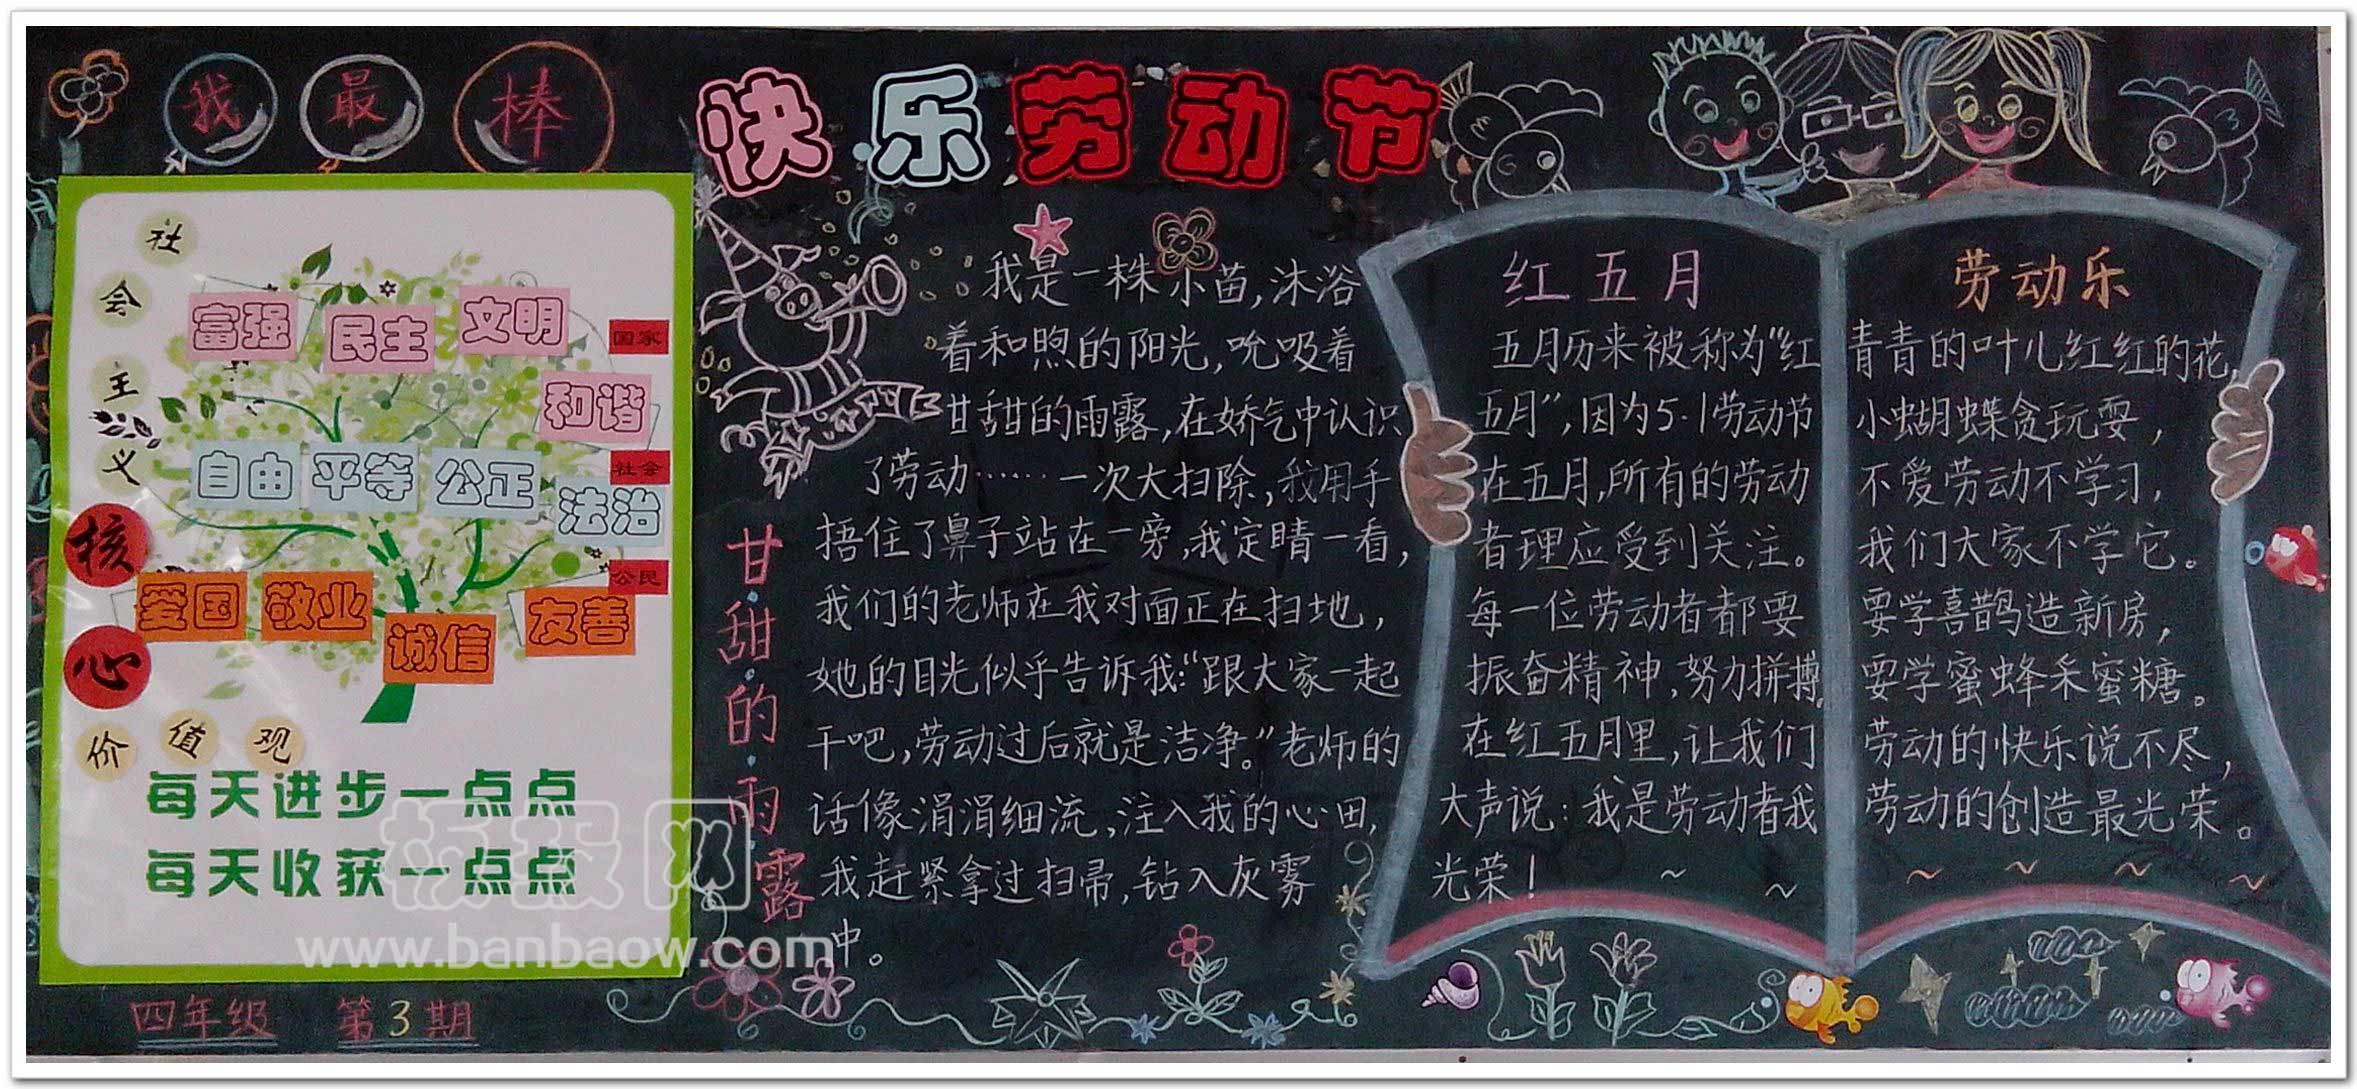 我最棒
快乐劳动节
社会主义核心价值观
富强 民主 文明 和谐
国家
自由 平等 公正 法治
社会
爱国 敬业 诚信 友善
公民
每天进步一点点
每天收获一点点
四年级 第3期
甘甜的雨露
我是一株小苗,沐浴
着和煦的阳光,吮吸着
甘甜的雨露,在娇气中认识
了劳动……一次大扫除,我用手
捂住了鼻子站在一旁,我定睛一看,
我们的老师在我对面正在扫地,
她的目光似乎告诉我:“跟大家一起
干吧,劳动过后就是洁净。”老师的
话像涓涓细流,注入我的心田,
我赶紧拿过扫帚,钻入灰雾
中。
红五月
五月历来被称为“红
五月”,因为5·1劳动节
在五月,所有的劳动
者理应受到关注。
每一位劳动者都要
振奋精神,努力拼搏,
在红五月里,让我们
大声说:我是劳动者我
光荣!
劳动乐
青青的叶儿红红的花,
小蝴蝶贪玩耍,
不爱劳动不学习,
我们大家不学它。
要学喜鹊造新房,
要学蜜蜂采蜜糖。
劳动的快乐说不尽,
劳动的创造最光荣。
板报网
www.banbaow.com